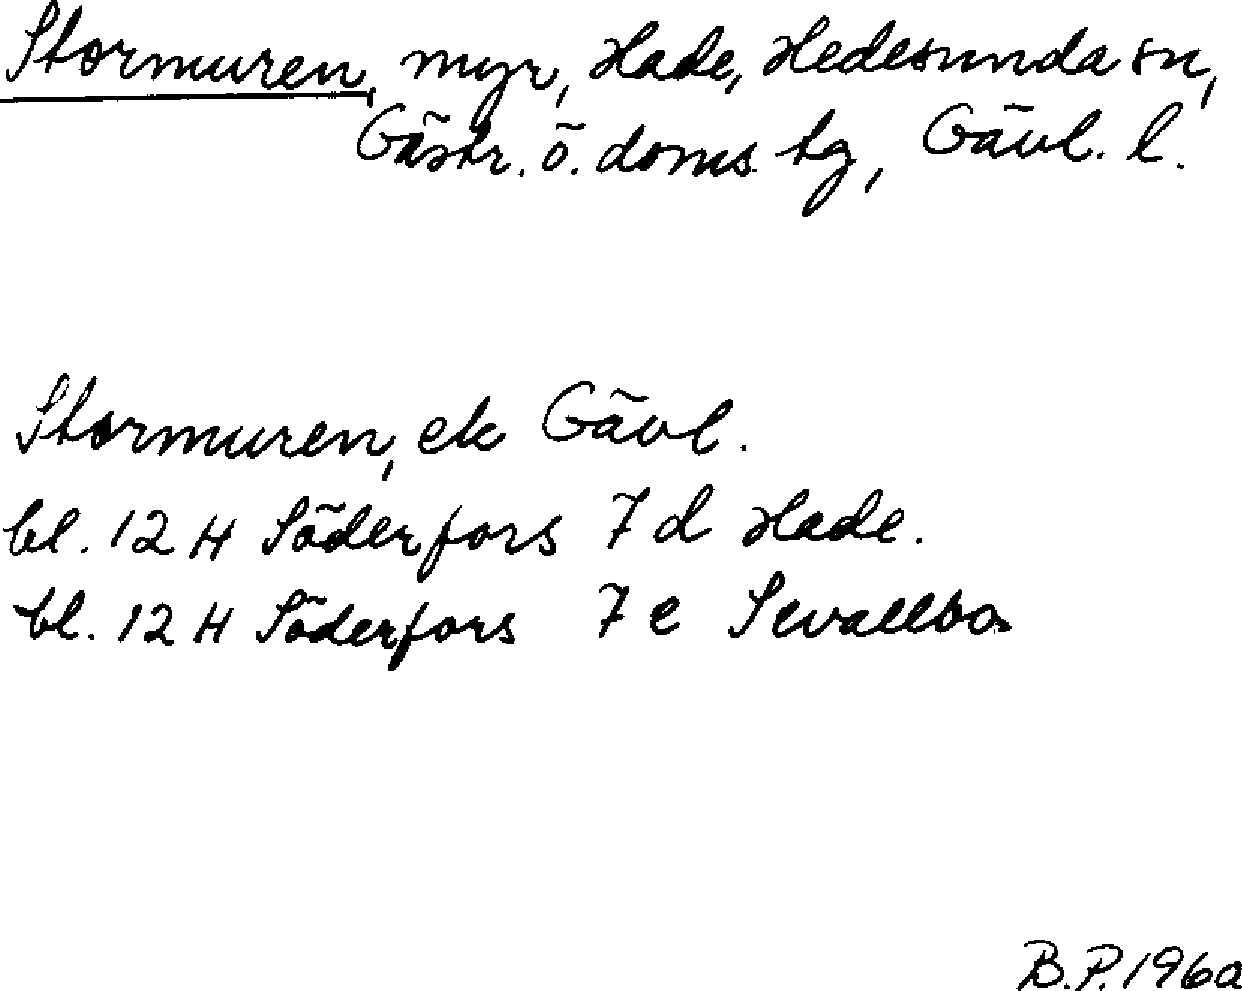 Stormuren, myr, Hade, Hedesunda sn,
Gästr. ö. doms. tg, Gävl. l.
Stormuren, ek Gävl.
bl. 12 H Söderfors 7 d Hade.
bl. 12 H Söderfors 7 e Sevallbo
B.P. 196